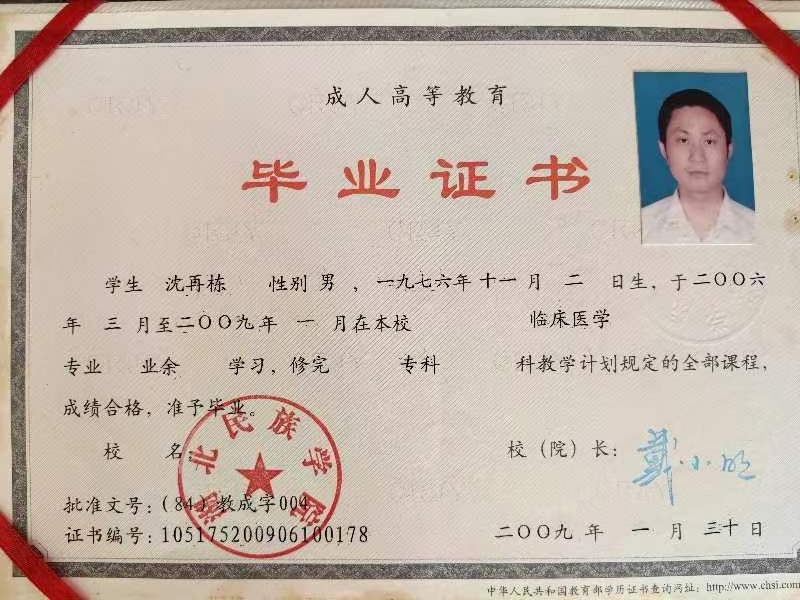 成人高等教育
毕业证书
学生 沈再栋 性别 男 ，一九七六年 十一 月 二 日生，于二〇〇六
年 三 月至二〇〇九年 一 月在本校 临床医学
专业 业余 学习，修完 专科 科教学计划规定的全部课程，
成绩合格，准予毕业。
校 名： 校（院）长： 戴小明
湖北民族学院
批准文号：（84）教成字004
证书编号：105175200906100178 二〇〇九 年 一 月 三十 日
中华人民共和国教育部学历证书查询网址：http://www.chsi.com.cn